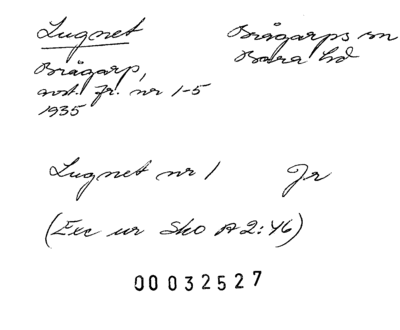 Lugnet
Brågarps sn
Bara hd
Brågarp,
avst. fr. nr 1-5
1935
Lugnet nr 1 Jr
(Exc ur Sko A2:46)
00032527